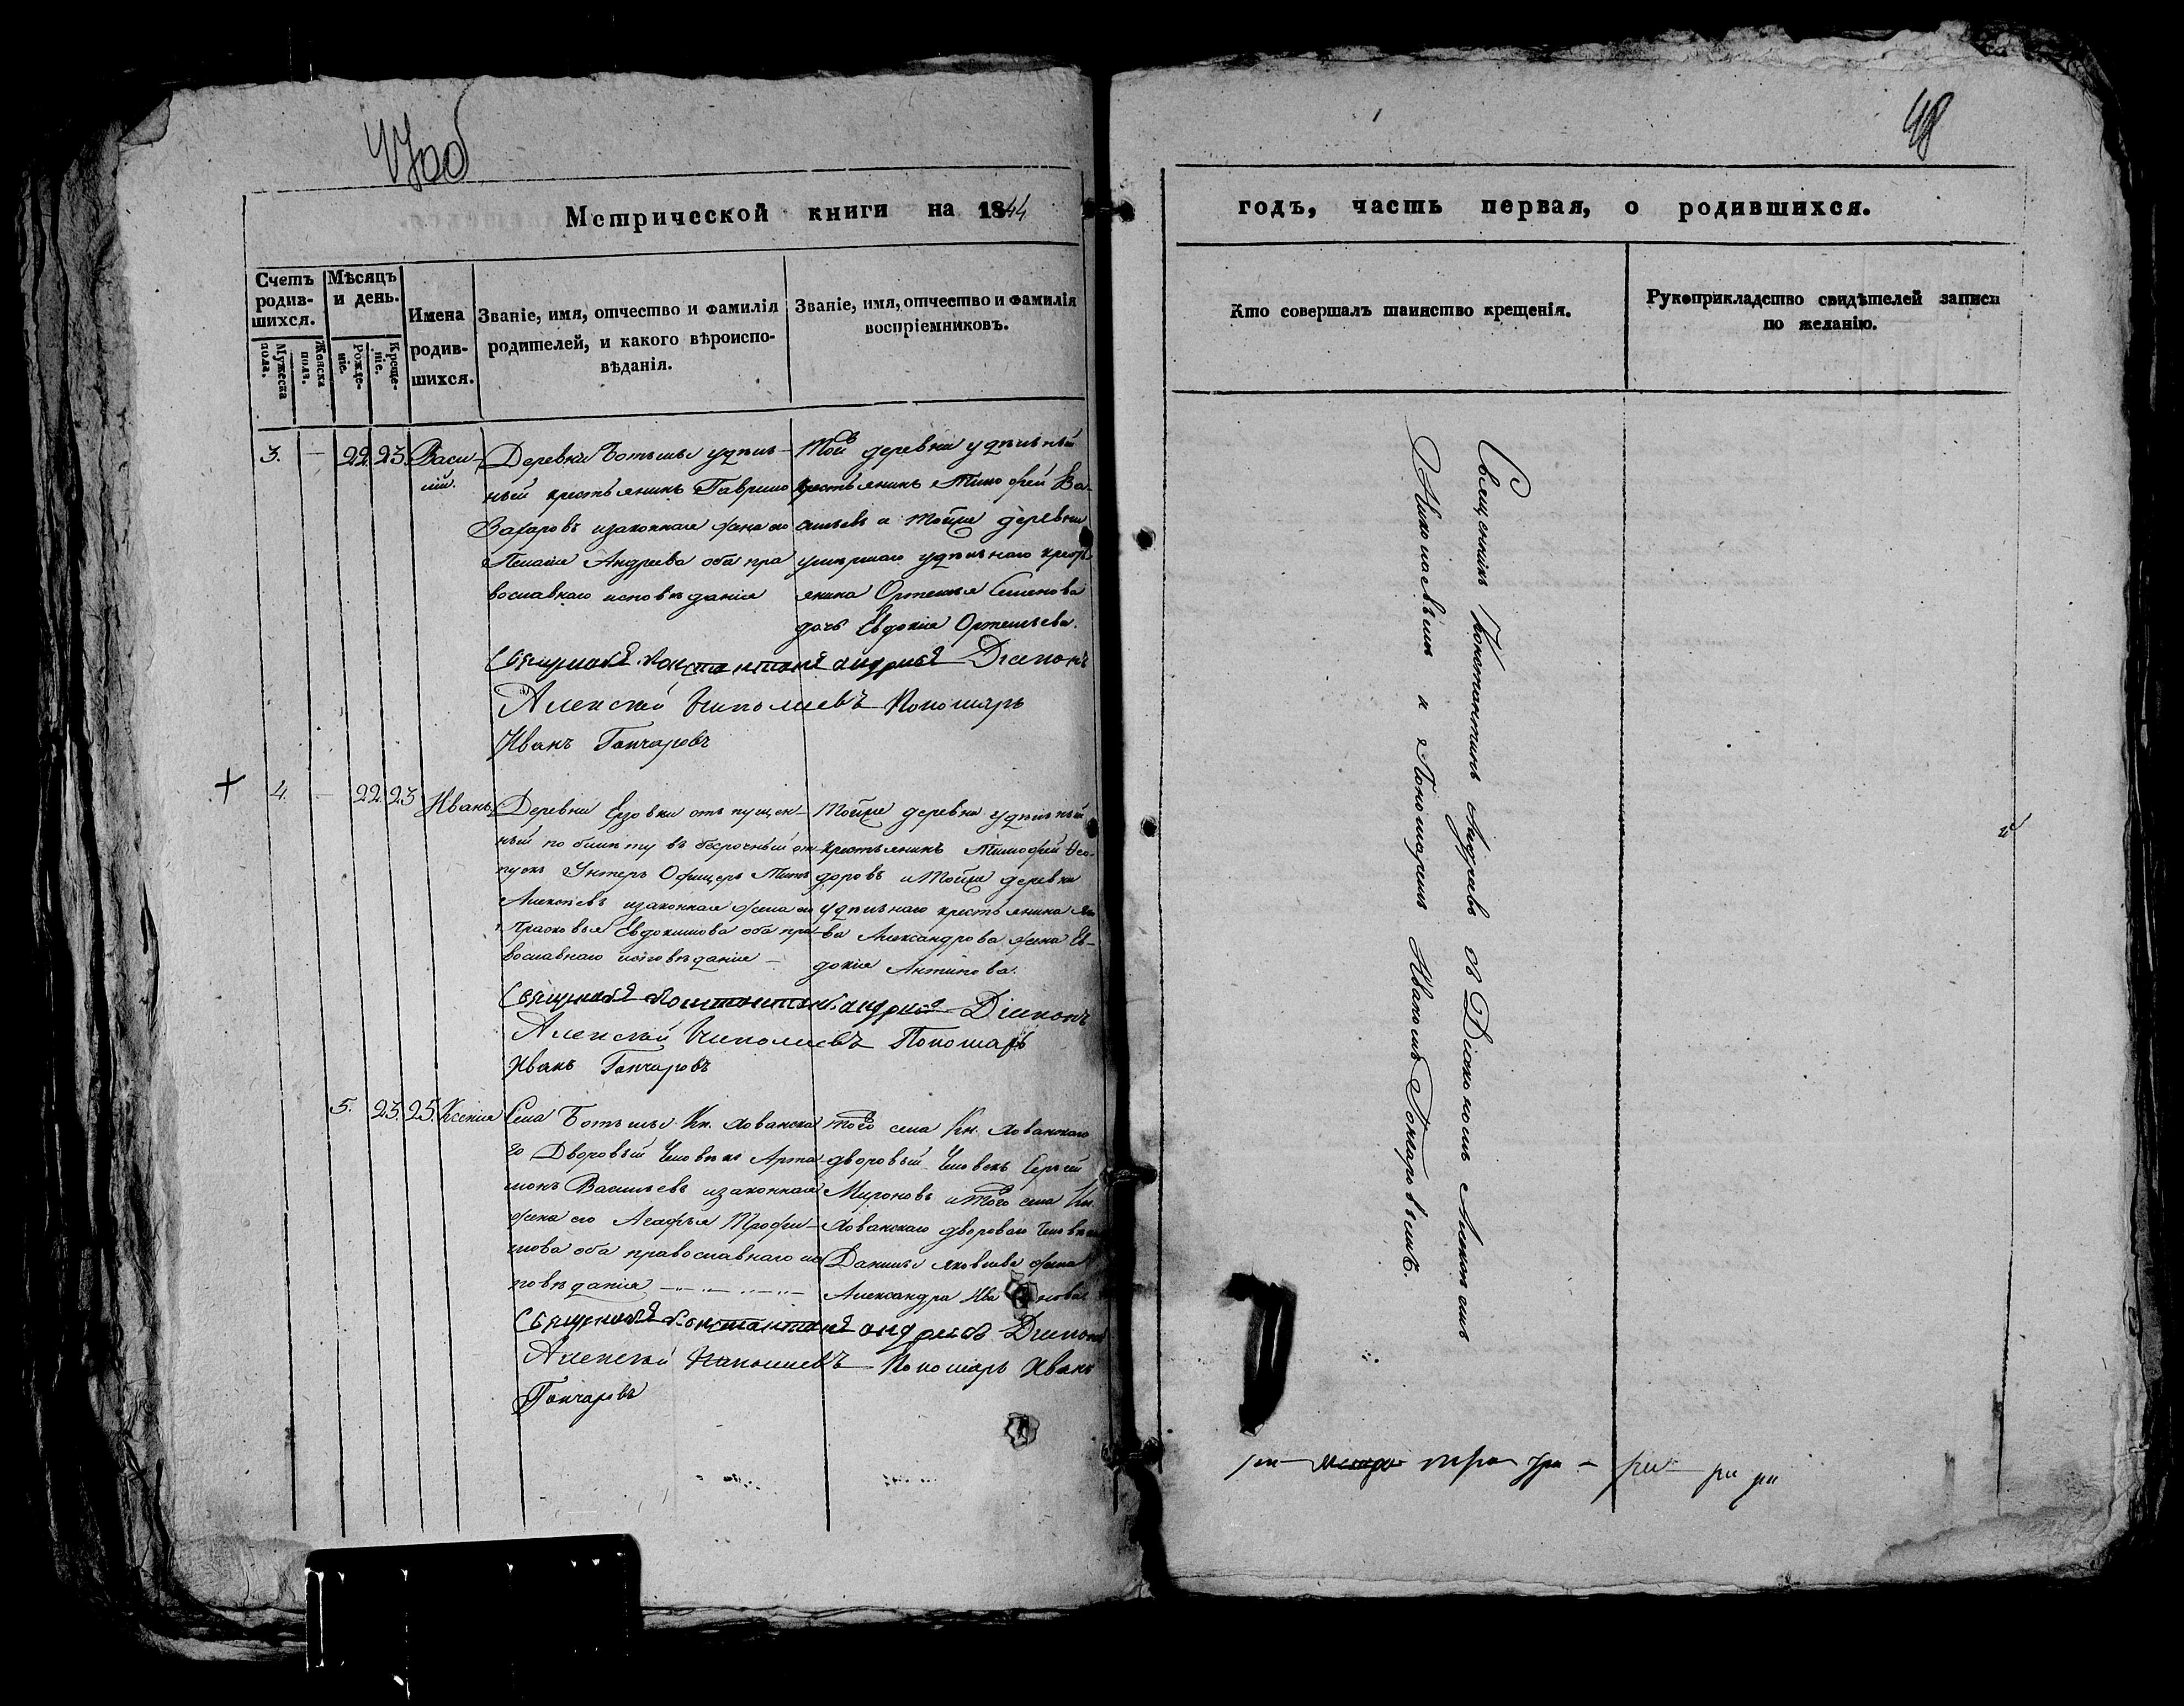 47об
Метрической книги на 1844
Счетъ родив-шихся.
Мужеска пола.
Женска пола.
Мѣсяцъ и день.
Рожде-ніе.
Креще-ніе.
Имена родив-шихся.
Званіе, имя, отчество и фамилія
родителей, и какого вѣроиспо-
вѣданія.
Званіе, имя, отчество и фамилія
воспріемниковъ.
3. — 22. 23. Васи-
лій.
Деревни Ботьмы удѣль-
ный крестьянинъ Гаврило
Захаровъ и законная жена его
Пелагія Андреева оба пра
вославнаго исповѣданія
Той деревни удѣльный
крестьянинъ Тимофей Ва-
сильевъ и тойже деревни
умершаго удѣльнаго крест
янина Ортемья Семенова
дочь Евдокія Ортемьева.
Священникъ Константинъ Андреевъ Діаконъ
Алексѣй Николаевъ Пономарь
Иванъ Гончаровъ
4. — 22. 23 Иванъ
Деревни Ерзовки отпущен-
ный по билету въ безсрочный от
пускъ Унтеръ Офицеръ
Алексѣевъ и законная жена его
Прасковья Евдокимова оба пра
вославнаго исповѣданія —
Тойже деревни удѣльный
крестьянинъ Тимофей Ѳео-
доровъ и тойже деревни
удѣльнаго крестьянина
ва Александрова жена Ев-
докія Антипова.
Священникъ Константинъ Андреевъ Діаконъ
Алексѣй Николаевъ Пономарь
Иванъ Гончаровъ
5. 23. 25. Ксенія
Села Ботьмы Кн. Хованска
го Дворовый Человѣкъ Арта
монъ Васильевъ и законная
жена его Агафья Трофи-
мова оба православнаго ис
повѣданія
Того села Кн. Хованскаго
дворовый Человекъ Сергѣй
Мироновъ и того села Кн.
Хованскаго двороваго Человѣка
Данилы Яковлева жена
Александра Иванова
Священникъ Константинъ Андреевъ Діаконъ
Алексѣй Николаевъ Пономарь Иванъ
Гончаровъ
48
годъ, часть первая, о родившихся.
Кто совершалъ таинство крещенія.
Рукоприкладство свидѣтелей записи
по желанію.
Священникъ Константинъ Андреевъ съ Діакономъ Алексѣемъ
Николаевымъ и Пономаремъ Иваномъ Гончаровымъ.